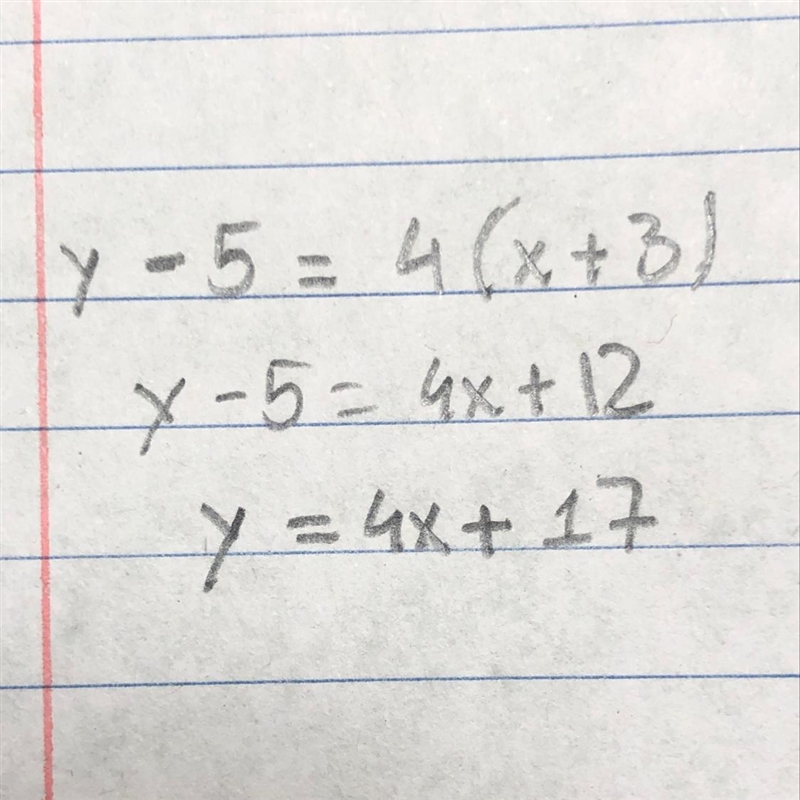 y - 5 = 4(x + 3)
y - 5 = 4x + 12
y = 4x + 17